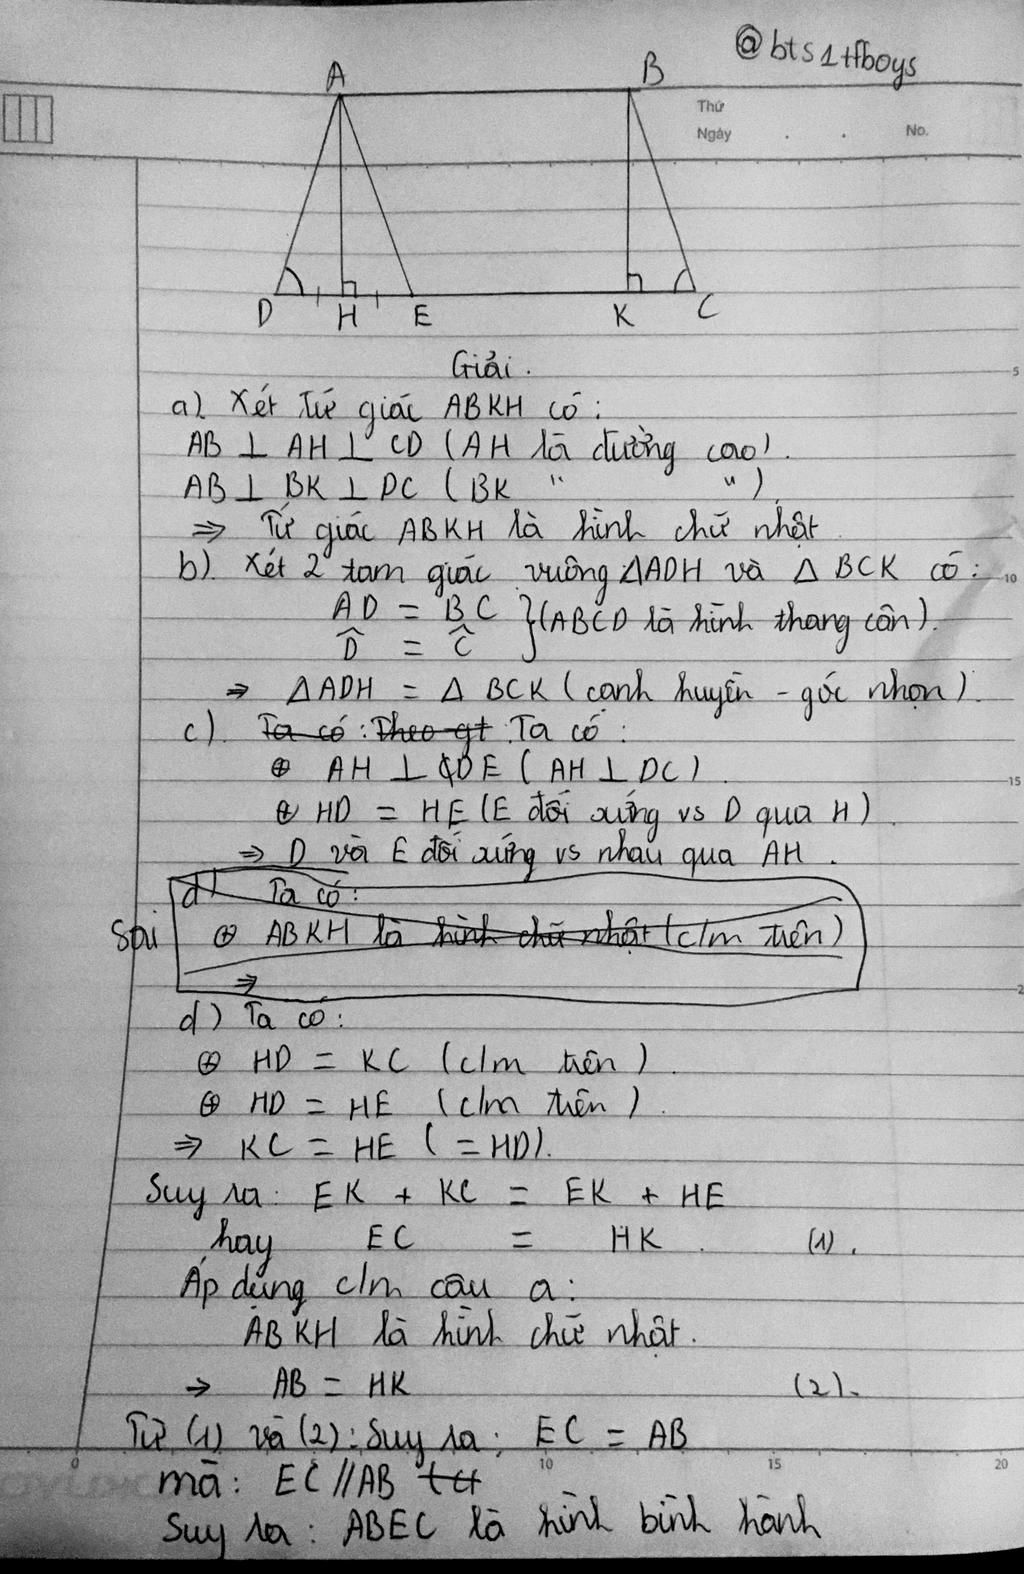 @bts1tfboys
A
B
Thứ
Ngày . . No.
D H E K C
5
Giải.
a). Xét Tứ giác ABKH có:
AB ⊥ AH ⊥ CD (AH là đường cao).
AB ⊥ BK ⊥ DC (BK " ")
⇒ Tứ giác ABKH là hình chữ nhật
b). Xét 2 tam giác vuông ΔADH và Δ BCK có:
10
AD = BC
D̂ = Ĉ } (ABCD là hình thang cân).
⇒ ΔADH = Δ BCK (cạnh huyền - góc nhọn).
c). Ta có: Theo gt Ta có:
⊕ AH ⊥ DE (AH ⊥ DC).
15
⊕ HD = HE (E đối xứng vs D qua H)
⇒ D và E đối xứng vs nhau qua AH.
d) Ta có:
Sai ⊕ ABKH là hình chữ nhật (c/m trên)
⇒
2
d) Ta có:
⊕ HD = KC (c/m trên).
⊕ HD = HE (c/m trên).
⇒ KC = HE (=HD).
Suy ra: EK + KC = EK + HE
hay EC = HK. (1).
Áp dụng c/m câu a:
ABKH là hình chữ nhật.
→ AB = HK (2).
Từ (1) và (2): Suy ra: EC = AB
0 10 15 20
mà: EC // AB
Suy ra: ABEC là hình bình hành